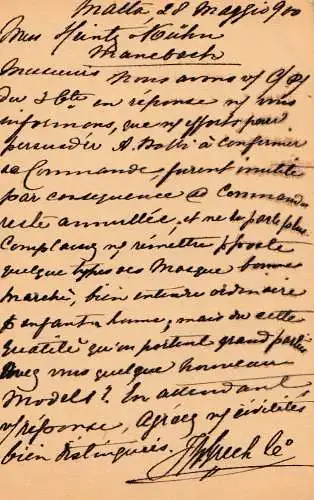 Malta 28 Maggio 900
Mess Heintz & Kühn
Manebach
Messieurs Nous avons v/ C/P/
du 3 Cte en réponse n/ vous
informons, que n/ efforts pour
persuader A. à confirmer
sa Commande, furent inutile
par consequence @ Command
reste annullée. et ne plus
n/ remettre p poste
quelque types des Masque bonne
marché, bien entendu ordinaire
p enfant & home, mais du cette
qualité qu'on portent grand
Avez vous quelque nouveau
Models? En attendant
v/ réponse, Agréez n/ civilités
bien distinguées.